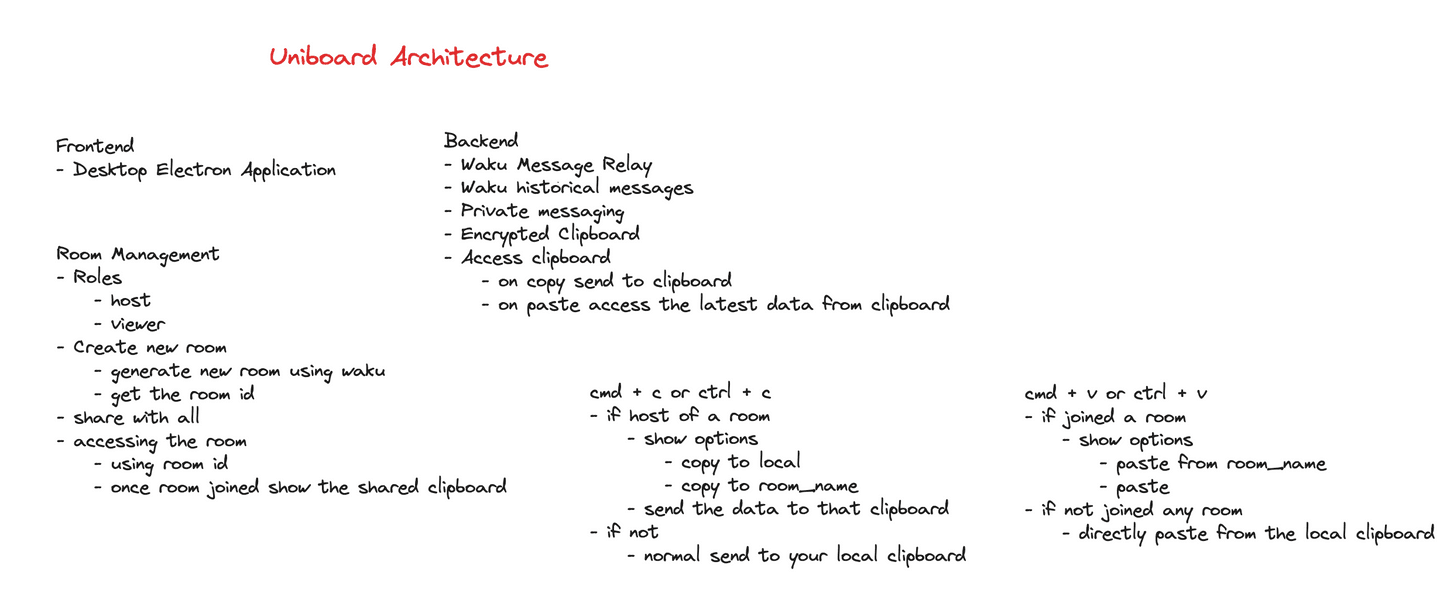 Uniboard Architecture
Frontend
- Desktop Electron Application
Backend
- Waku Message Relay
- Waku historical messages
- Private messaging
- Encrypted Clipboard
- Access clipboard
- on copy send to clipboard
- on paste access the latest data from clipboard
Room Management
- Roles
- host
- viewer
- Create new room
- generate new room using waku
- get the room id
- share with all
- accessing the room
- using room id
- once room joined show the shared clipboard
cmd + c or ctrl + c
- if host of a room
- show options
- copy to local
- copy to room_name
- send the data to that clipboard
- if not
- normal send to your local clipboard
cmd + v or ctrl + v
- if joined a room
- show options
- paste from room_name
- paste
- if not joined any room
- directly paste from the local clipboard